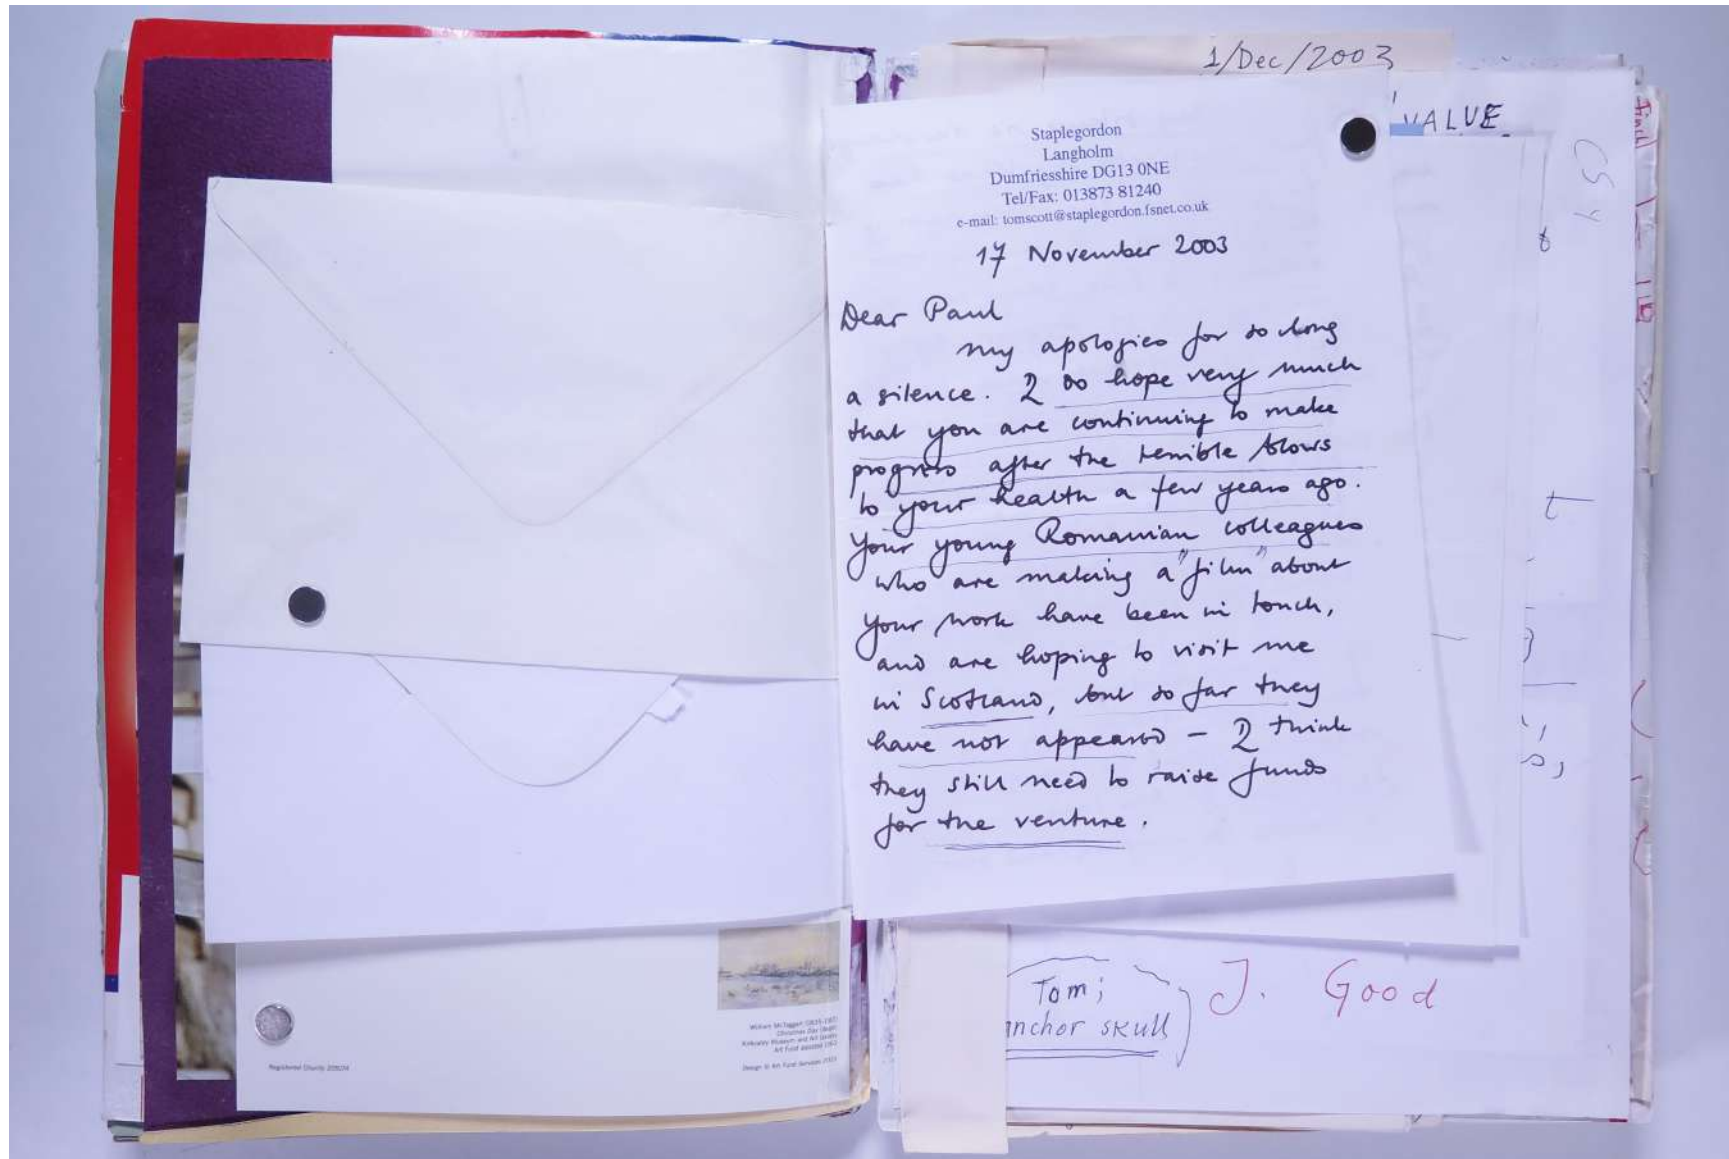 1/Dec/2003
VALUE
Staplegordon
Langholm
Dumfriesshire DG13 0NE
Tel/Fax: 013873 81240
e-mail: tomscott@staplegordon.fsnet.co.uk
17 November 2003
Dear Paul
my apologies for so long
a silence. I do hope very much
that you are continuing to make
progress after the terrible blows
to your health a few years ago.
Your young Romanian colleagues
who are making a "film" about
your work have been in touch,
and are hoping to visit me
in Scotland, but so far they
have not appeared – I think
they still need to raise funds
for the venture.
Tom;
nchor skull
J. Good
William McTaggart (1835-1910)
Christmas Day
Kirkcaldy Museum and Art Gallery
Art Fund assisted
Design © Art Fund Services 2003
Registered Charity 209174